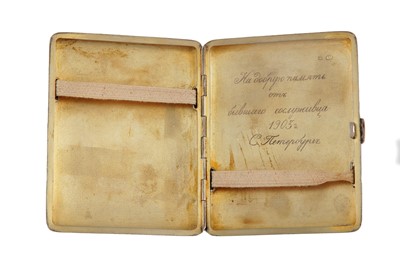 На добрую память
отъ
бывшаго
1905 г.
С. Петербургъ